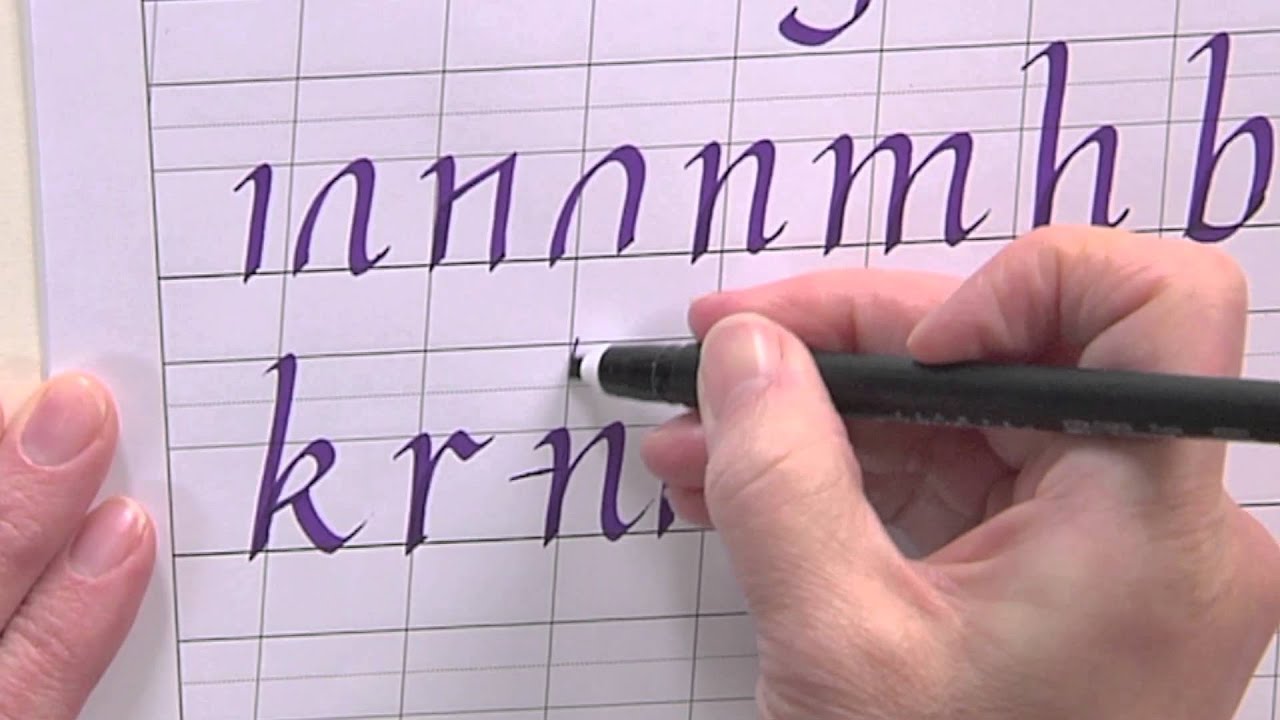 ı n n n n m h b
k r n